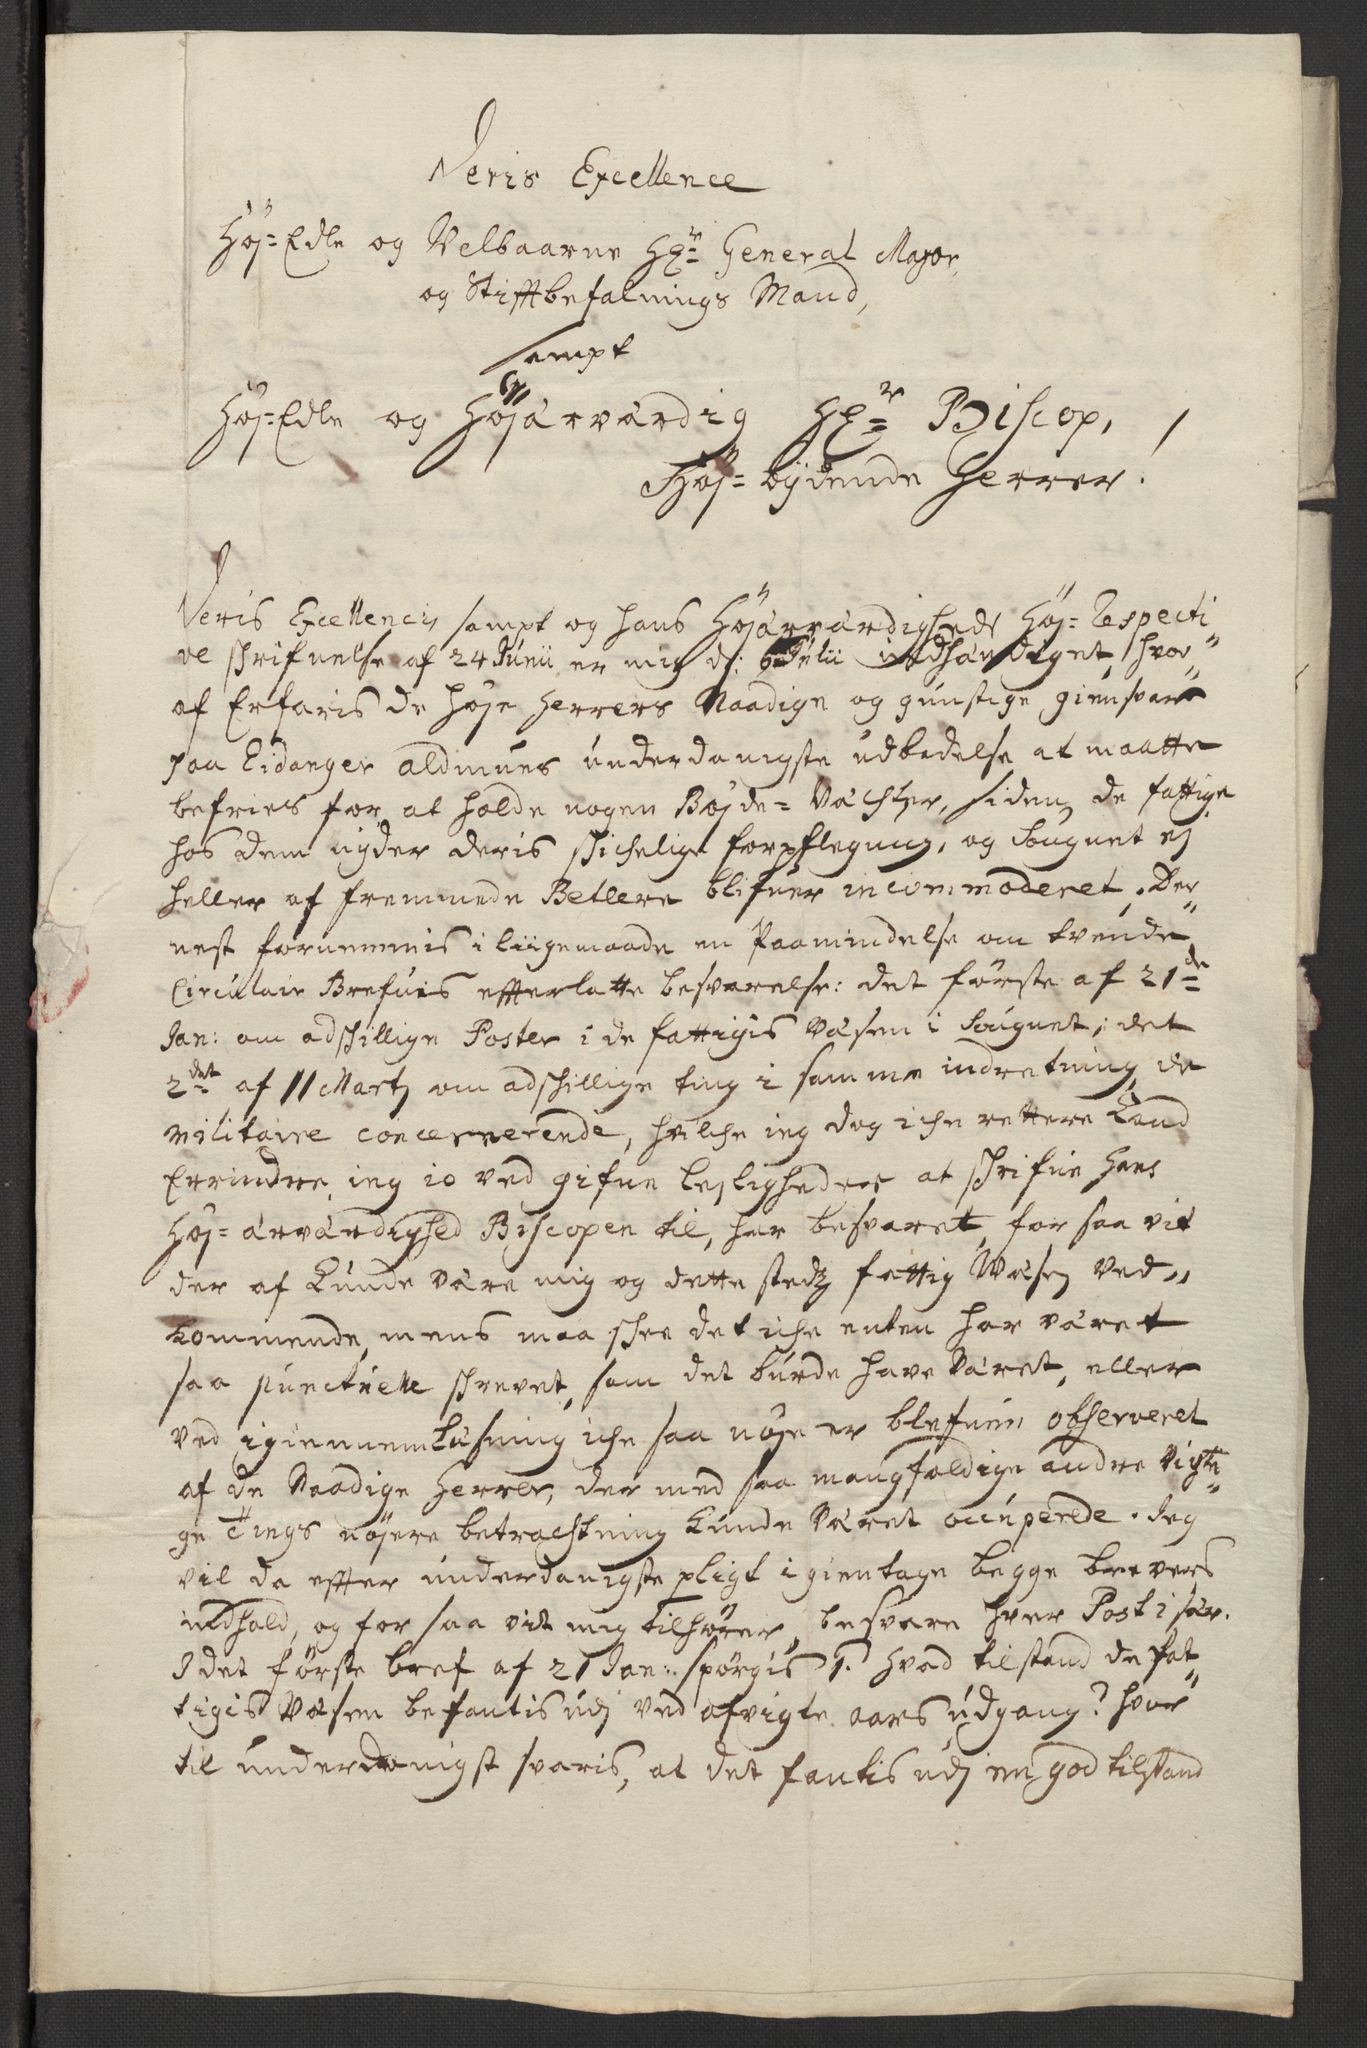 Deris Excellence
Høj=Edle og Velbaarne HEr General Major
og Stifftbefalnings Mand,
sampt
Høj=Edle og Højärvärdig HEr Biscop,
Høj=bÿdende Herrer!
Deris Excellences sampt og hans Højärvärdigheds Høj=respecti
ve skrifvelse af 24 Junii er mig d: 6 Julii indhändiget, hvor
af Erfaris de høje Herrers Naadige og gunstige giensvar
paa Eidanger aldmues underdanigste udbedelse at maatte
befries for at holde nogen Bøjde=Vächter, siden de fattige
hos dem nÿder deris skichelige forpflegning, og Sougnet ej
heller af fremmede Betlere blifver incommoderet. Der
nest fornemmis i liigemaade en Paamindelse om tvende
Circulair Brefvis efterlatte besvarelse: det første af 21de
Jan: om adskillige Poster i de fattigis Väsen i Sougnet; det
2det af 11 Martj om adskillige ting i samme indretning de
Militaire concernerende, hvilche ieg dog iche rettere Kand
Errindre, ieg io ved gifvne leyligheder at skrifve Hans
Høj=ärvärdighed Biscopen til, har besvaret, for saa vit
der af Kunde väre mig og dette stedz fattig Wäsen Ved
kommende, mens maa skee det iche enten har väret
saa punctuelle skrevet, som det burde have Väret, eller
ved igiennemläsning iche saa nøje er blefven observeret
af de Naadige Herrer, der med saa mangfoldige andre Vigti
ge Tings nøjere betrachtning Kunde Väret occuperede. Jeg
vil da effter underdanigste pligt igientage begge brevers
indhold, og for saa vit mig tilhører, besvare hver Post i sär.
I det første bref af 21 Jan: spørgis 1. hvad tilstand de fat
tigis Väsen befantis udj ved afvigte aars udgang? hvor
til underdanigst svaris, at det fantis udj en god tilstand